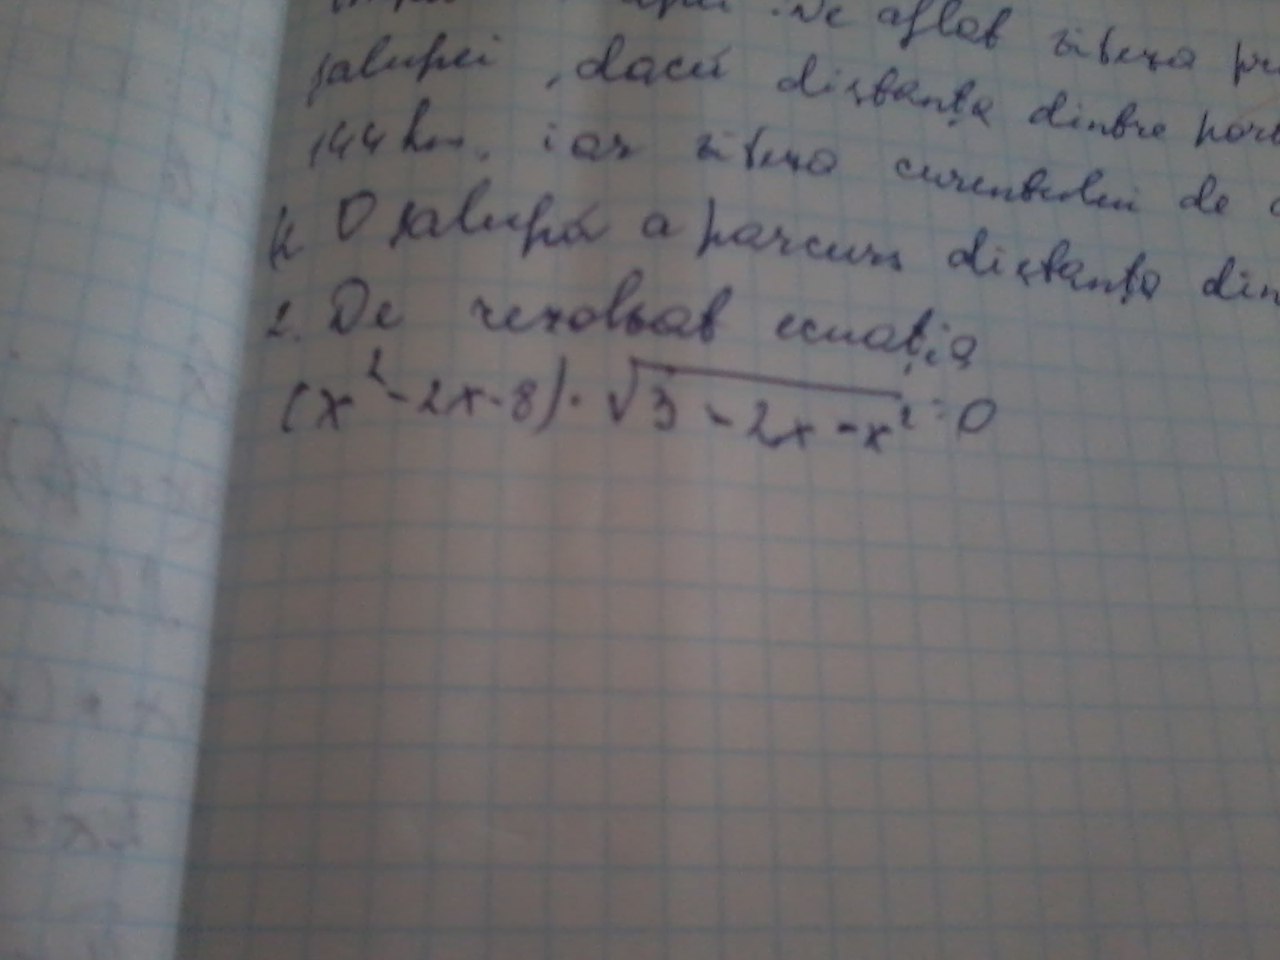 De aflat viteza
șalupei, dacă distanța dintre
144 km, iar viteza curentului de
O șalupă a parcurs distanța
2. De rezolvat ecuația
(x² - 2x - 8) · √3 - 2x - x² = 0